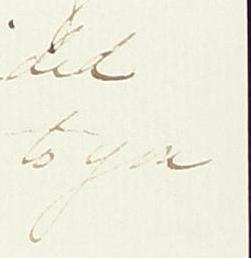 ded
to you